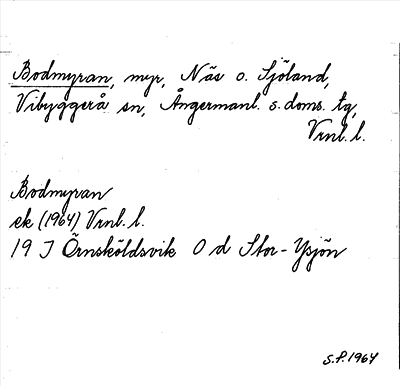 Bodmyran, myr, Näs o. Sjöland,
Vibyggerå sn, Ångermanl. s. doms. tg,
Vrnl. l.
Bodmyran
ek (1964) Vrnl. l.
19 J Örnsköldsvik 0 d Stor-Ysjön
S.P. 1964